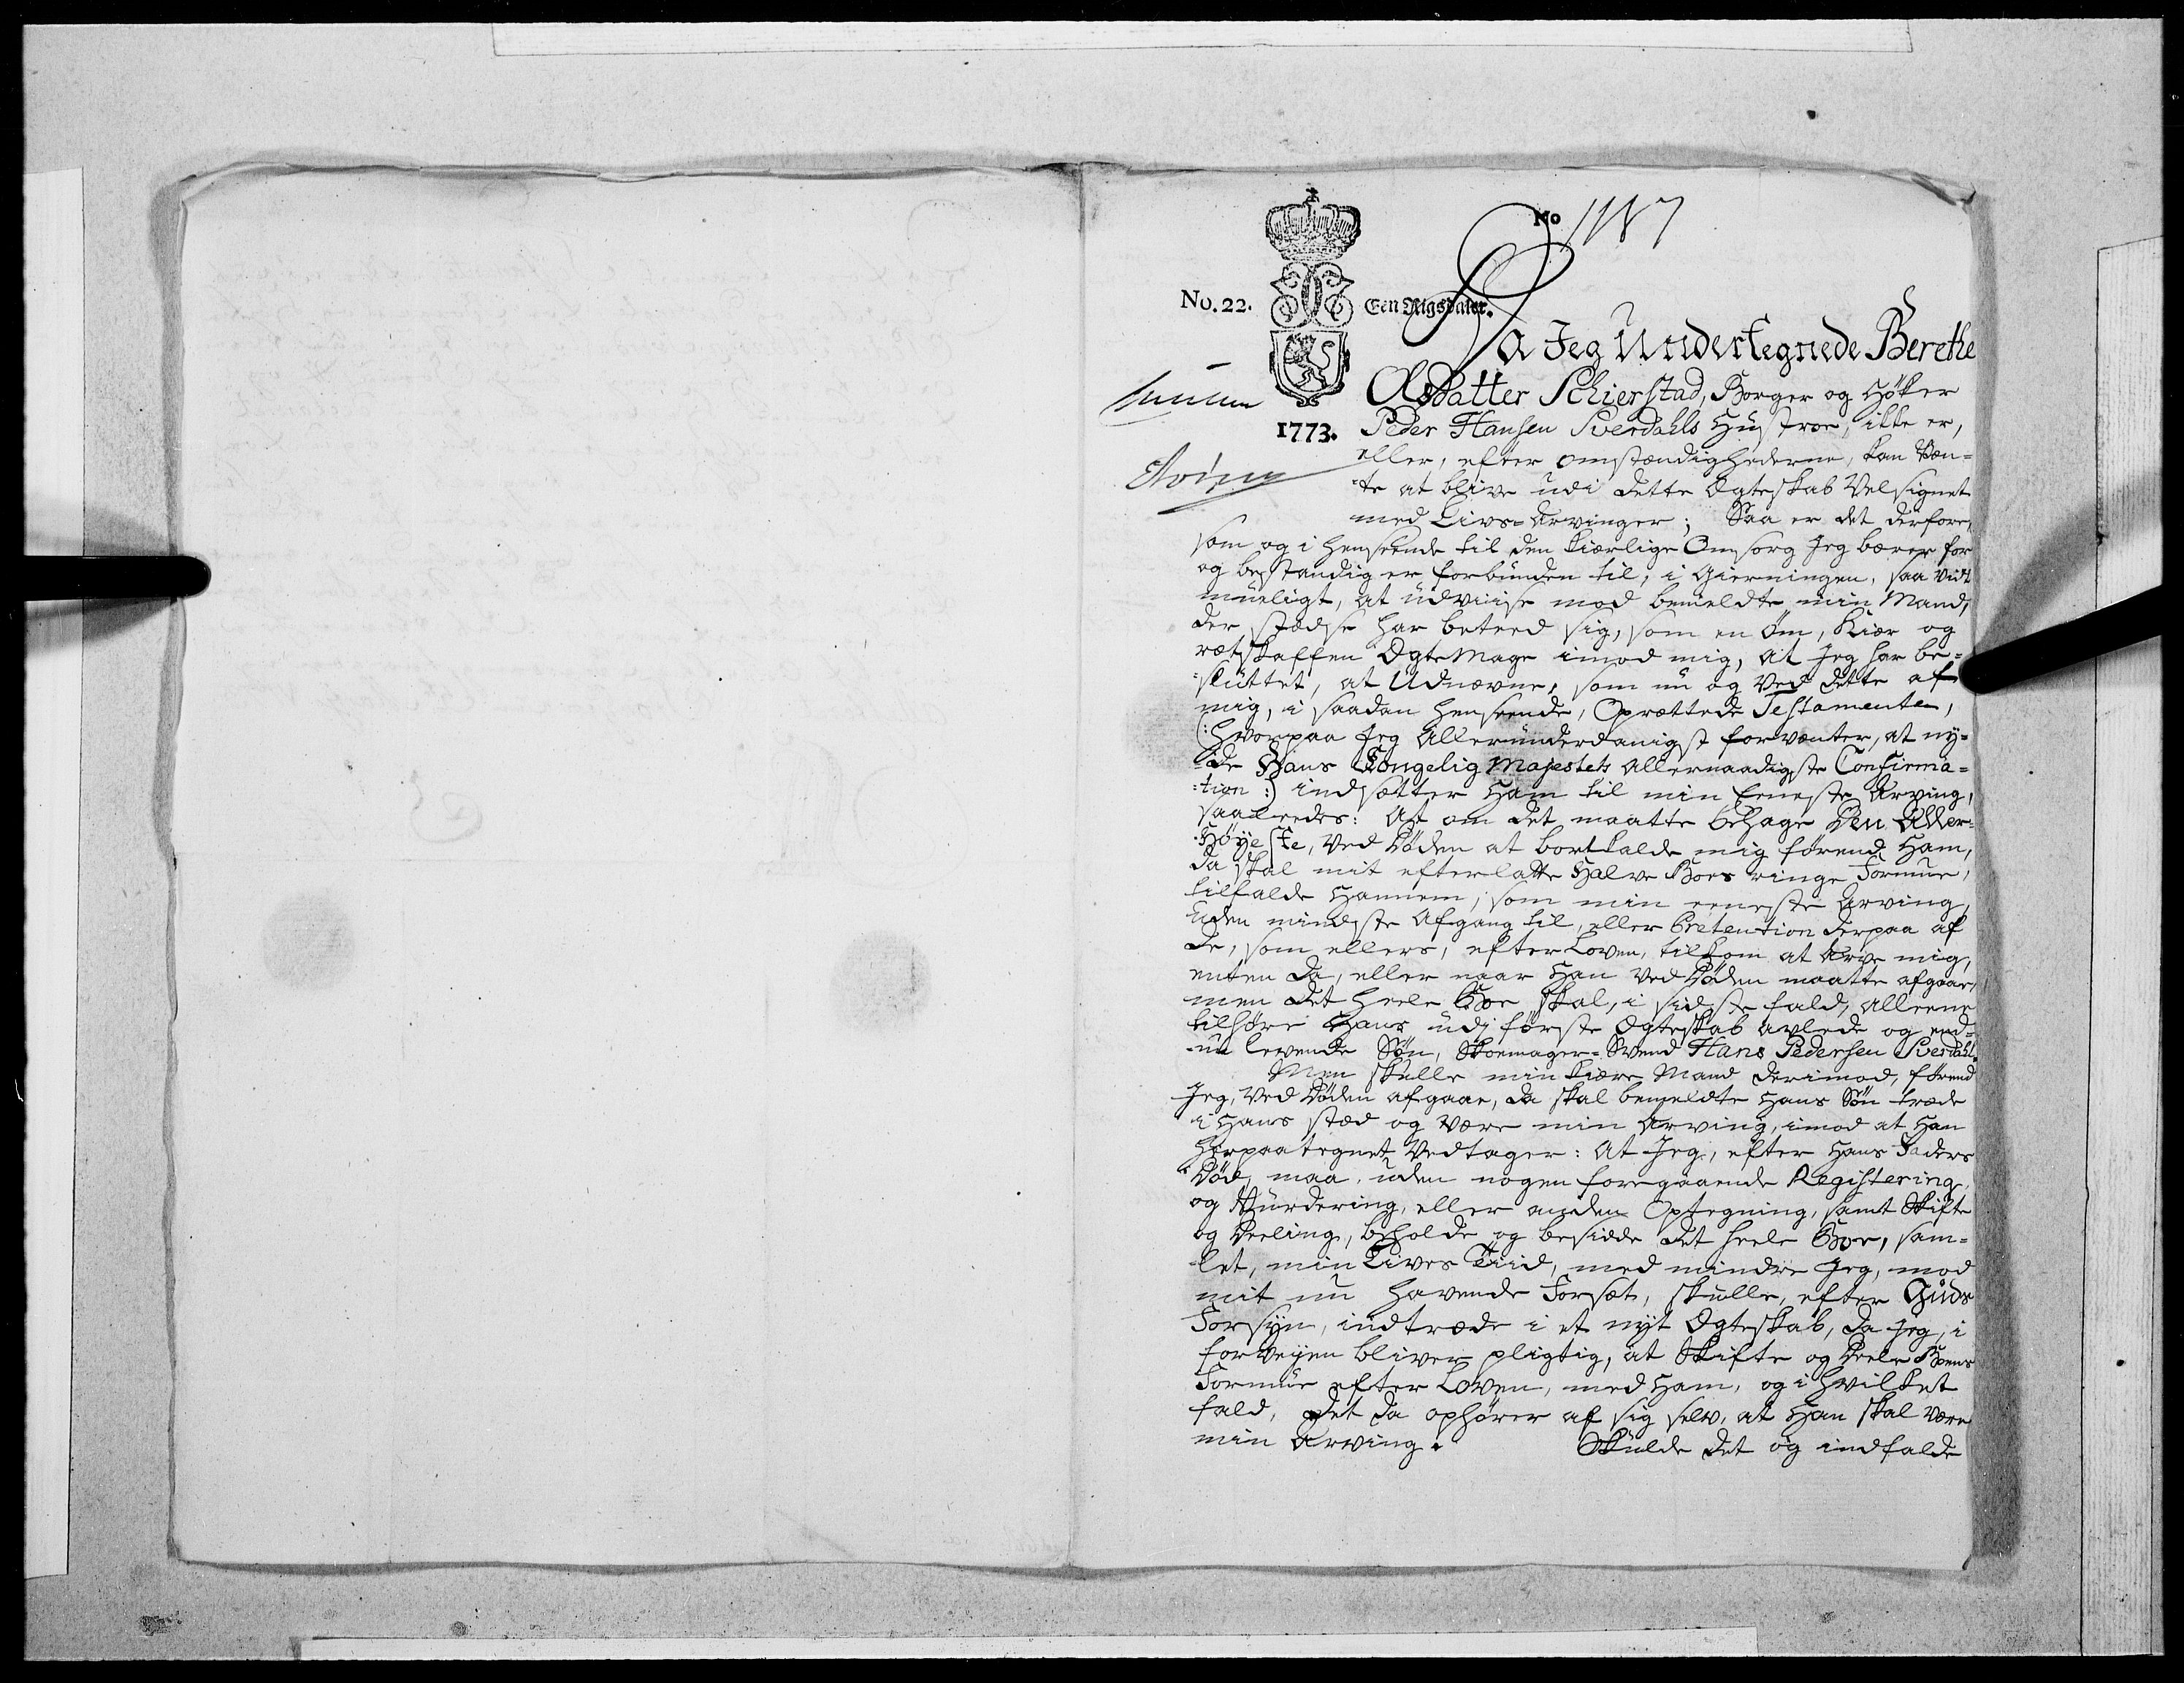 No 1187
No. 22.
Een Rigsdaler.
1773.
Da Jeg Undertegnede Berethe
Olsdatter Schierstad, Borger og Höker
Peder Hansen Sverdahls Hustroe, ikke er,
eller, efter omstændighederne, kan Væn-
-te at blive udi dette Ægteskab Velsignet
med Livs-Arvinger; Saa er det derfore,
som og i henseende til den kiærlige Omsorg Jeg bærer for
og bestandig er forbunden til, i Gierningen, saa vidt
mueligt, at udviise mod bemeldte min Mand,
der stædse har beteed sig, som en öm, kiær og
retskaffen Ægte Mage imod mig, at Jeg har be-
-sluttet, at Udnævne, som nu og Ved dette af
mig, i saadan henseende, Oprættede Testamente,
(: hvorpaa Jeg Allerunderdanigst forvænter, at ny-
-de Hans Kongelig Majestets Allernaadigste Confirma-
-tion :) indsætter Ham til min Eeneste Arving,
saaleedes: At om det maatte behage Den Aller-
-Höyeste, Ved Döden at bortkalde mig förend Ham,
da skal mit efterladte Halve Boes ringe Formue,
tilfalde Hannem, som min eeneste Arving,
uden mindste Afgang til, eller Prætention derpaa af
de, som ellers, efter Loven, tilkom at Arve mig,
enten da, eller naar Han Ved Döden maatte afgaae,
men det heele Boe skal, i sidste fald, alleene
tilhöre Hans udi förste Ægteskab avlede og end-
-nu levende Sön, Skoemager-Svend Hans Pedersen Sverdahl.
Men skulle min kiære Mand derimod, förend
Jeg, Ved Döden afgaae, da skal bemeldte Hans Sön træde
i Hans stæd og være min Arving, imod at Han
herpaategnet Vedtager: At Jeg, efter Hans Faders
Död, maa, uden nogen foregaaende Registering
og Vurdering, eller anden Optegning, samt Skifte
og Deeling, beholde og besidde det heele Boe, sam-
-let, min Lives Tiid, med mindre Jeg, mod
mit nu havende Forsæt, skulle, efter Guds
Forsyn, indtræde i et nyt Ægteskab, da Jeg, i
forveyen bliver pligtig, at Skifte og Deele Boens
Formue efter Loven, med Ham, og i hvilket
fald, det da ophörer af sig selv, at Han skal være
min Arving. Skulde det og indfalde